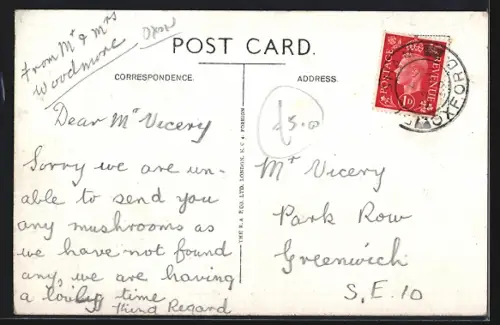 From Mr & Mrs
Woodmore
Oxon
POST CARD.
CORRESPONDENCE.
ADDRESS.
POSTAGE
REVENUE
1D
OXFORD
£5.00
Dear Mr Vicery
Sorry we are un-
able to send you
any mushrooms as
we have not found
any, we are having
a lovely time
Kind Regard
THE R. A. P. CO. LTD. LONDON, E.C. 4.
Mr Vicery
Park Row
Greenwich
S.E. 10